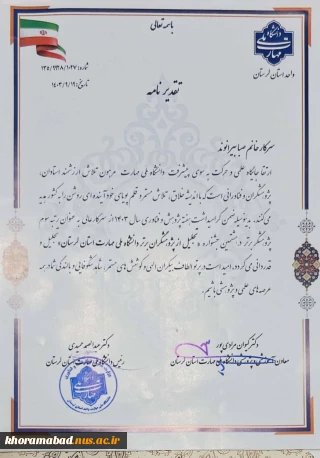 باسمه تعالی
دانشگاه ملی مهارت
واحد استان لرستان
شماره: ۱۳۵/۹۹۳۸/۱۰۲۷
تاریخ: ۱۴۰۳/۹/۱۹
تقدیرنامه
سرکار خانم صبا بیرانوند
ارتقا جایگاه علمی و حرکت به سوی پیشرفت دانشگاه ملی مهارت مرهون تلاش ارزشمند استادان،
پژوهشگران و فناورانی است که با اندیشه خلاق، تلاش مستمر و قلم پویای خود آینده ای روشن را به کشور هدیه
می کنند. بدینوسیله ضمن گرامیداشت هفته پژوهش و فناوری سال ۱۴۰۳ از سرکارعالی به عنوان رتبه سوم
پژوهشگر برتر در هشتمین جشنواره تجلیل از پژوهشگران برتر دانشگاه ملی مهارت استان لرستان، تجلیل و
قدردانی می گردد. امید است در پرتو الطاف بیکران الهی و کوشش های مستمر، شاهد شکوفایی و بالندگی شما در همه
عرصه های علمی و پژوهشی باشیم.
دکتر کیوان مرادی پور
معاون پژوهشی دانشگاه ملی مهارت استان لرستان
دکتر عبدالصمد حمیدی
رئیس دانشگاه ملی مهارت استان لرستان
khoramabad.nus.ac.ir